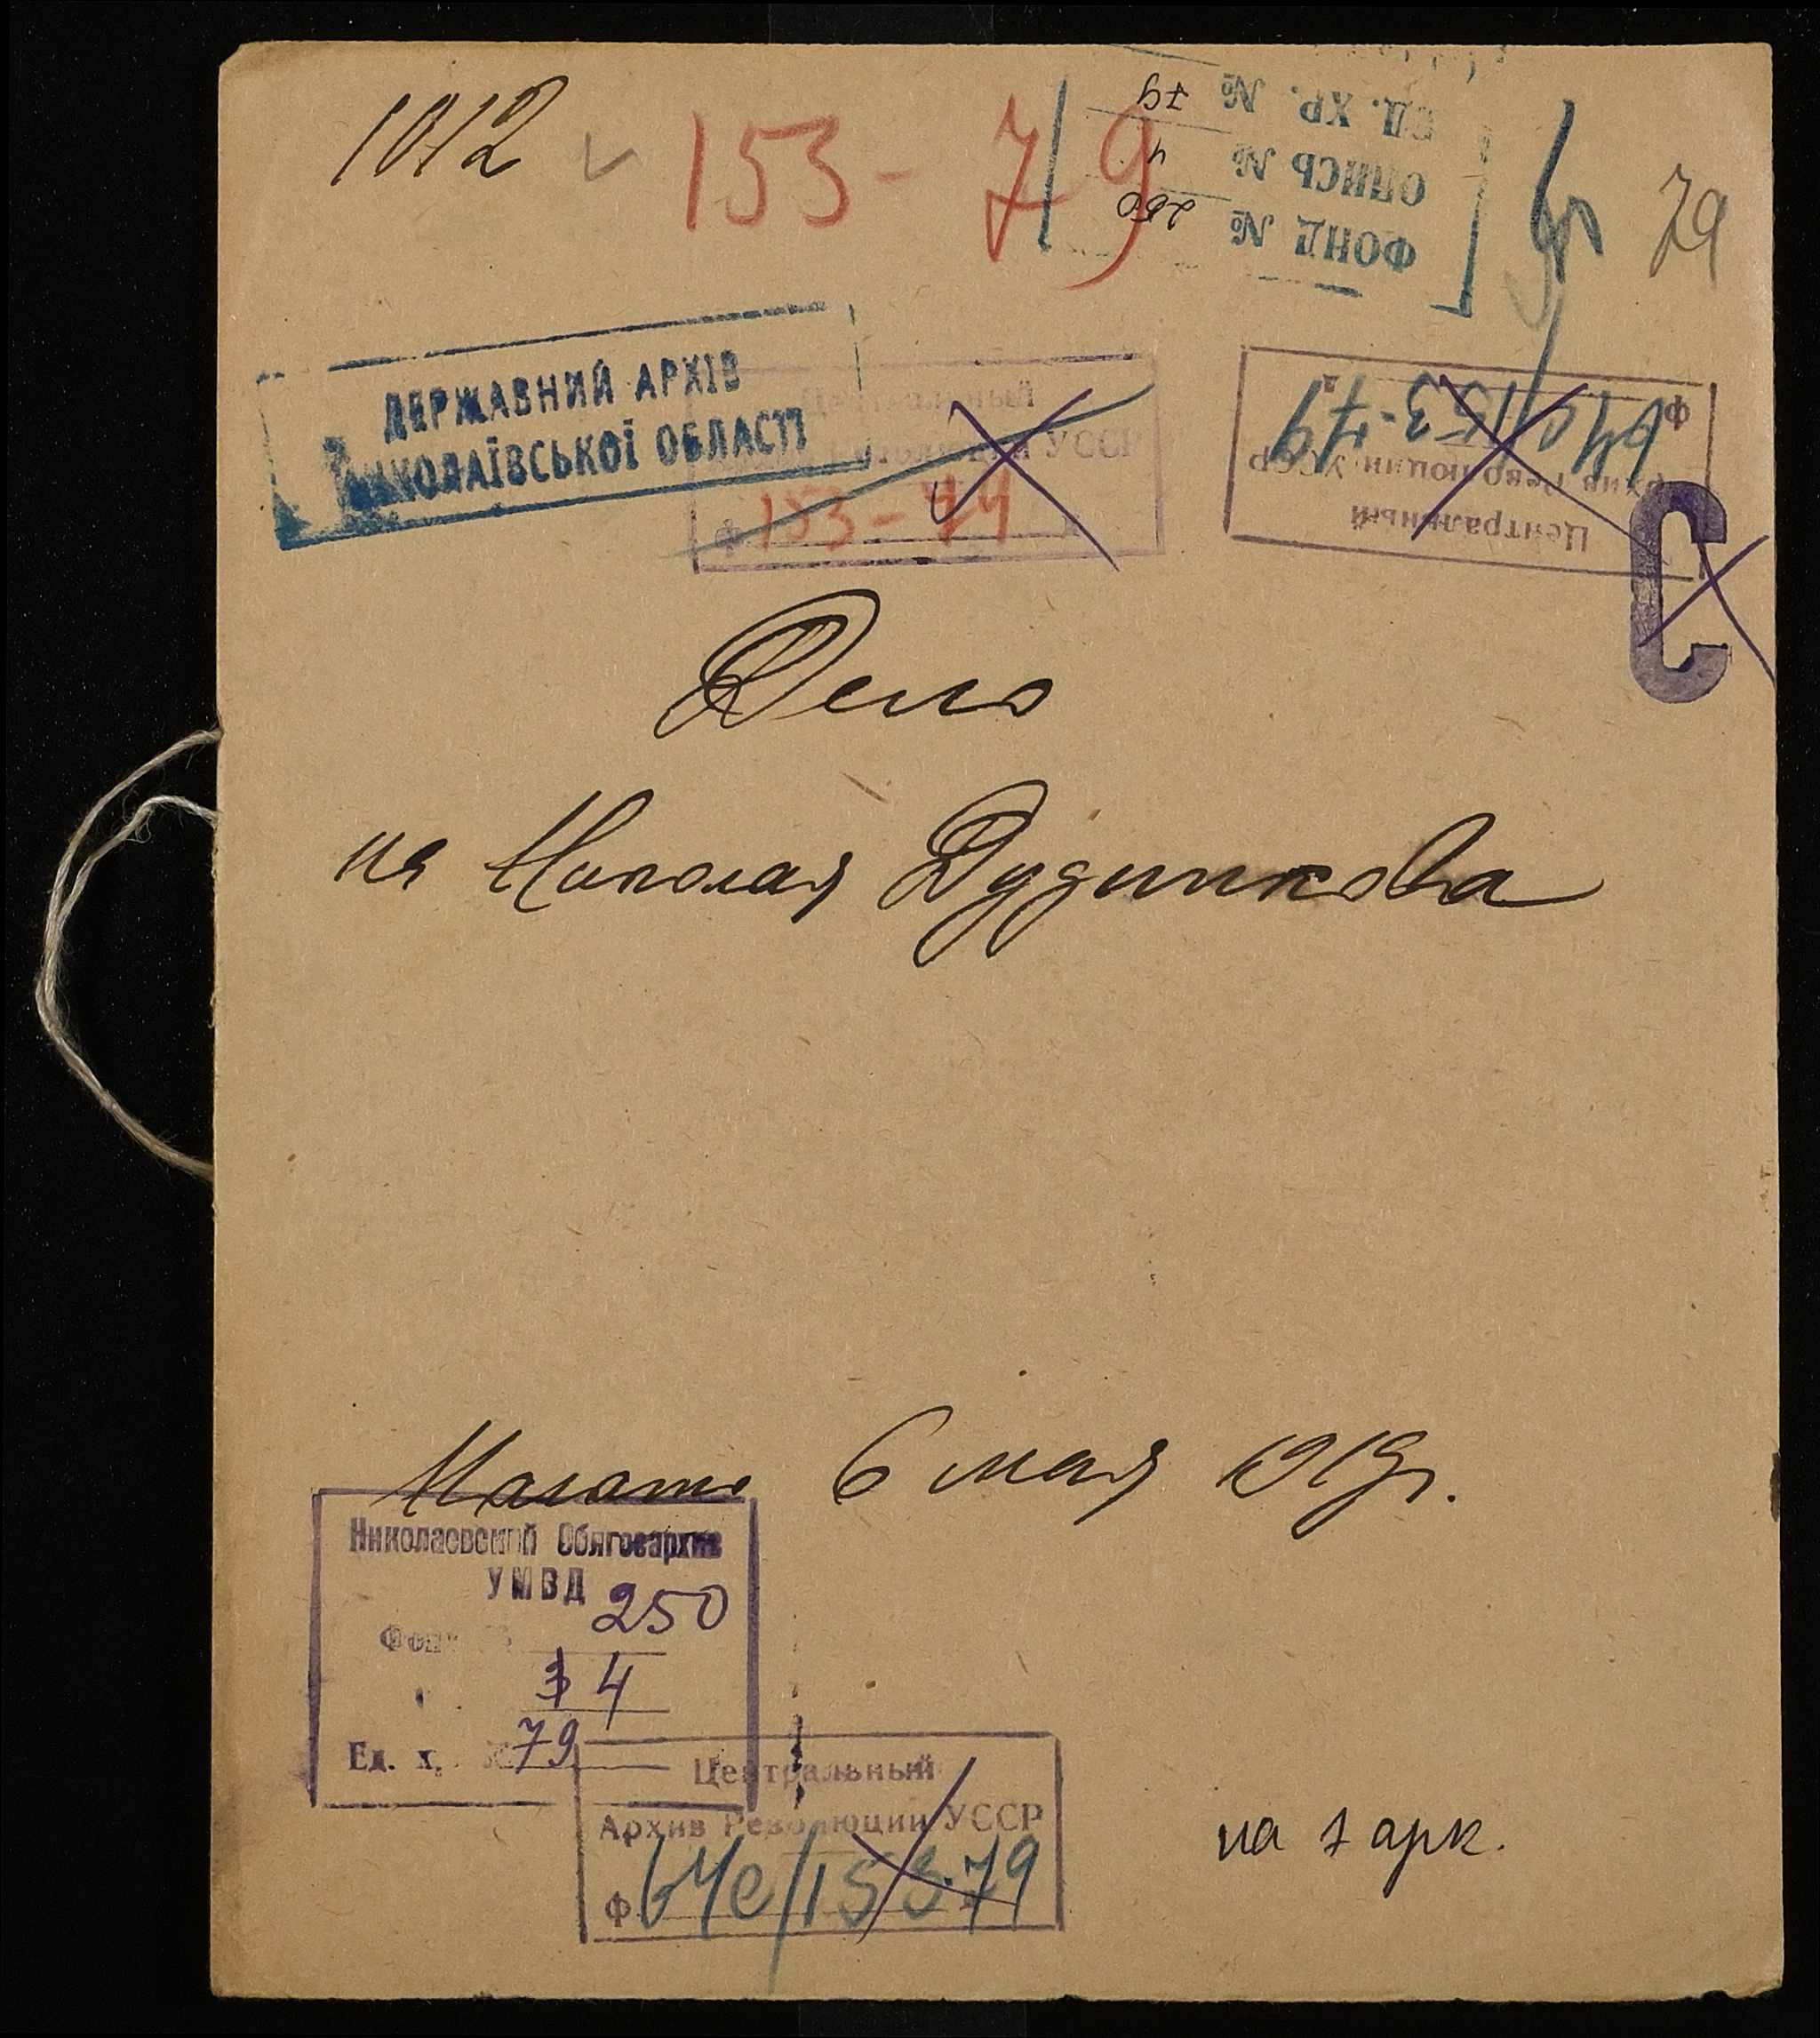 1012 153-79 79
ФОНД № 250
ОПИСЬ № 4
ЕД. ХР. № 79
ДЕРЖАВНИЙ АРХІВ
МИКОЛАЇВСЬКОЇ ОБЛАСТІ
Центральный
УССР
Ф 153-74
Центральный
Архив Революции УССР
Ф 64с/153-79
С
Дело
на Николая Дудникова
Начато 6 мая 1919 г.
Николаевский Облгосархив
УМВД
Фонд 250
3 4
Ед. х. 79
Центральный
Архив Революции УССР
Ф 64с/153-79
на 7 арк.